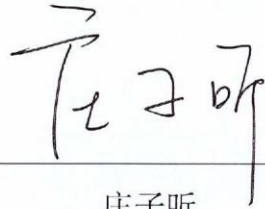 庄子昕
庄子昕